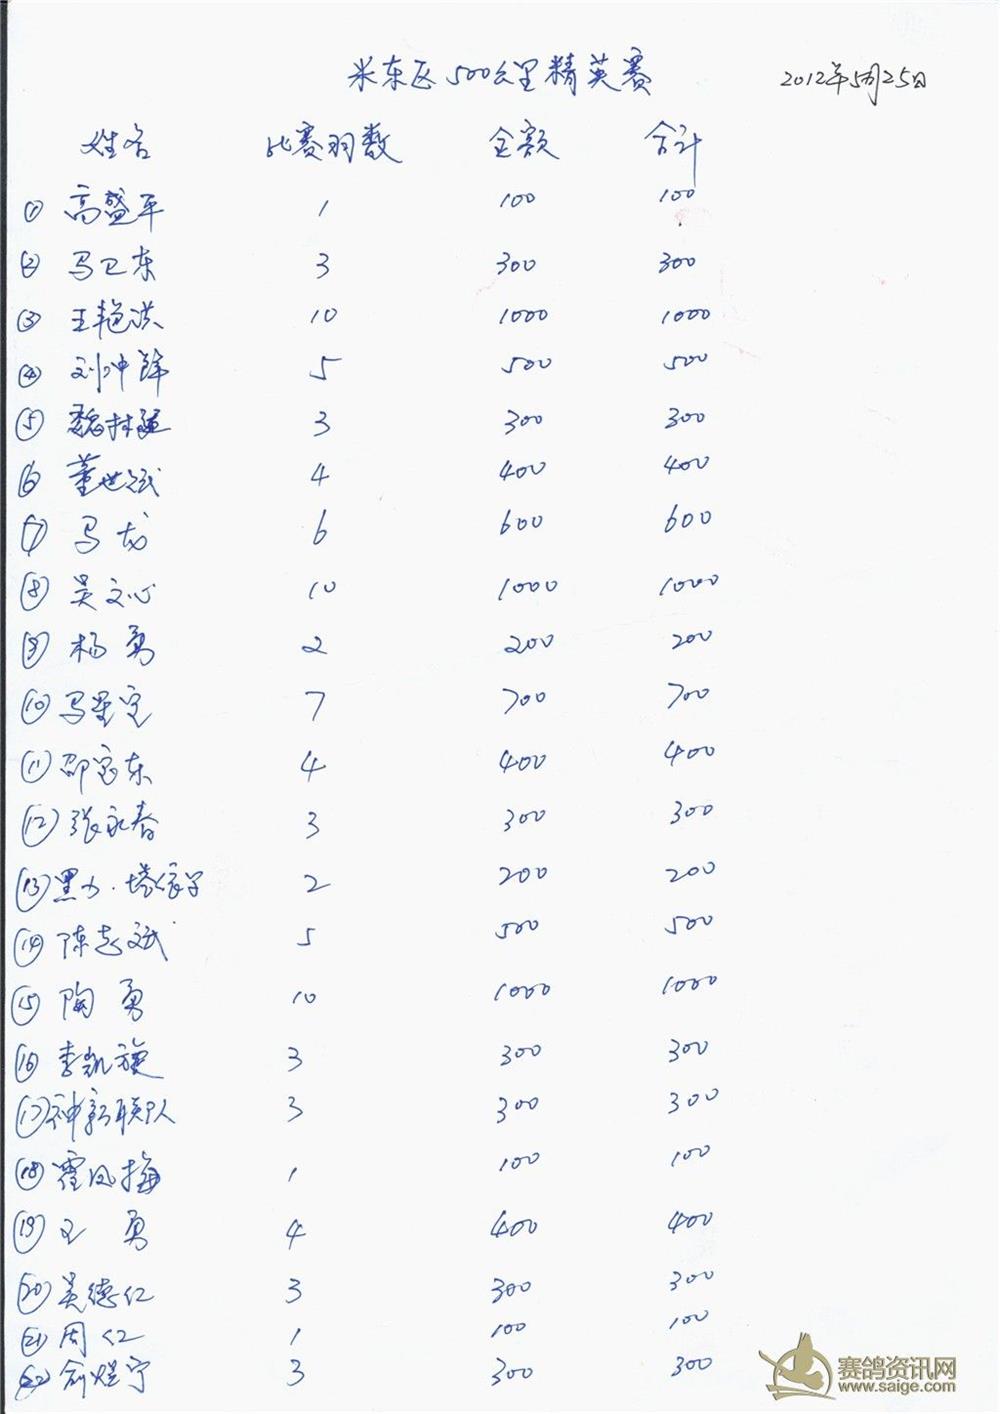 米东区500公里精英赛 2012年5月25日
姓名 比赛羽数 金额 合计
① 高盛平 1 100 100
② 马卫东 3 300 300
③ 王艳洪 10 1000 1000
④ 刘冲 5 500 500
⑤ 魏林 3 300 300
⑥ 董世斌 4 400 400
⑦ 马龙 6 600 600
⑧ 吴文心 10 1000 1000
⑨ 杨勇 2 200 200
⑩ 马星宝 7 700 700
⑪ 邵宝东 4 400 400
⑫ 张永春 3 300 300
⑬ 黑力· 2 200 200
⑭ 陈志斌 5 500 500
⑮ 陶勇 10 1000 1000
⑯ 李凯旋 3 300 300
⑰ 神新联队 3 300 300
⑱ 霍凤梅 1 100 100
⑲ 王勇 4 400 400
⑳ 吴德仁 3 300 300
㉑ 周仁 1 100 100
㉒ 俞煜宁 3 300 300
赛鸽资讯网
www.saige.com